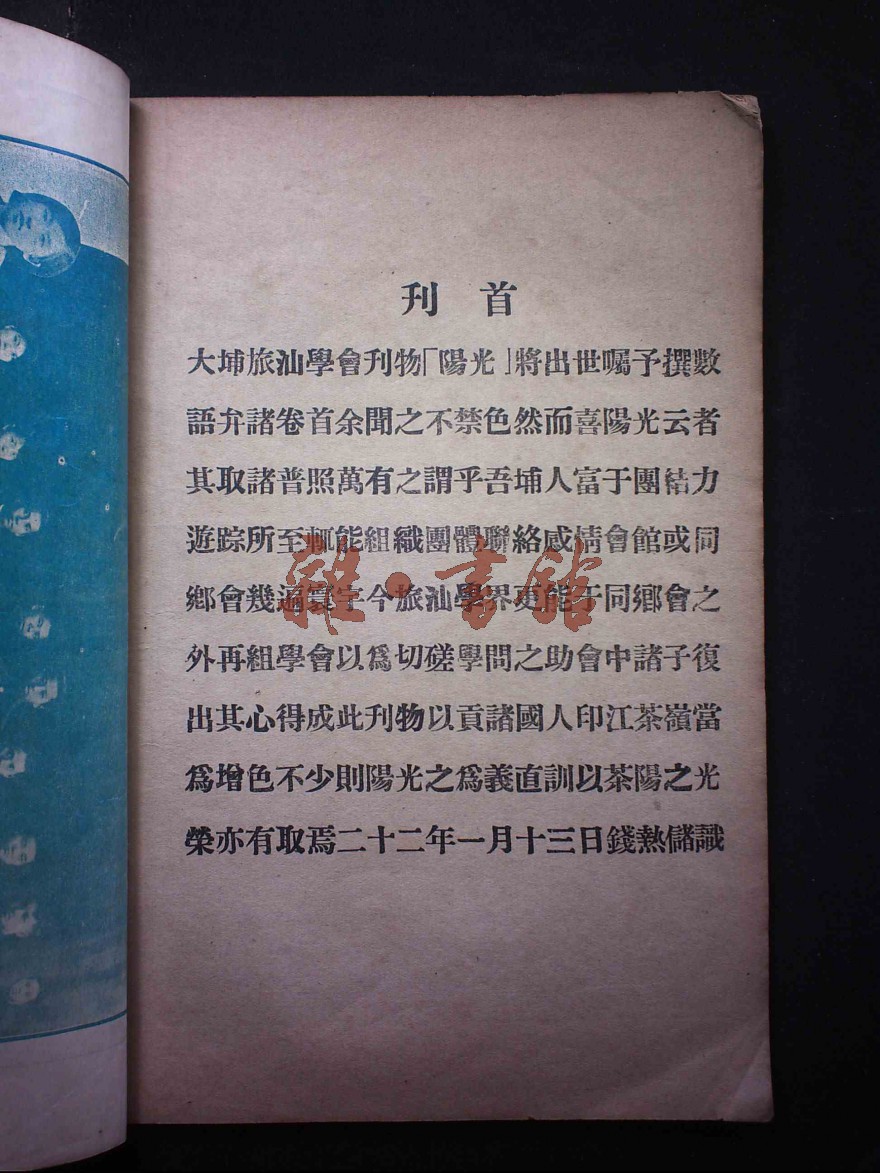 刊 首
大埔旅汕學會刊物「陽光」將出世囑予撰數
語弁諸卷首余聞之不禁色然而喜陽光云者
其取諸普照萬有之謂乎吾埔人富于團結力
遊踪所至輒能組織團體聯絡感情會館或同
鄉會幾遍寰宇今旅汕學界更能于同鄉會之
外再組學會以爲切磋學問之助會中諸子復
出其心得成此刊物以貢諸國人印江茶嶺當
爲增色不少則陽光之爲義直訓以茶陽之光
榮亦有取焉二十二年一月十三日錢熱儲識
雜·書館